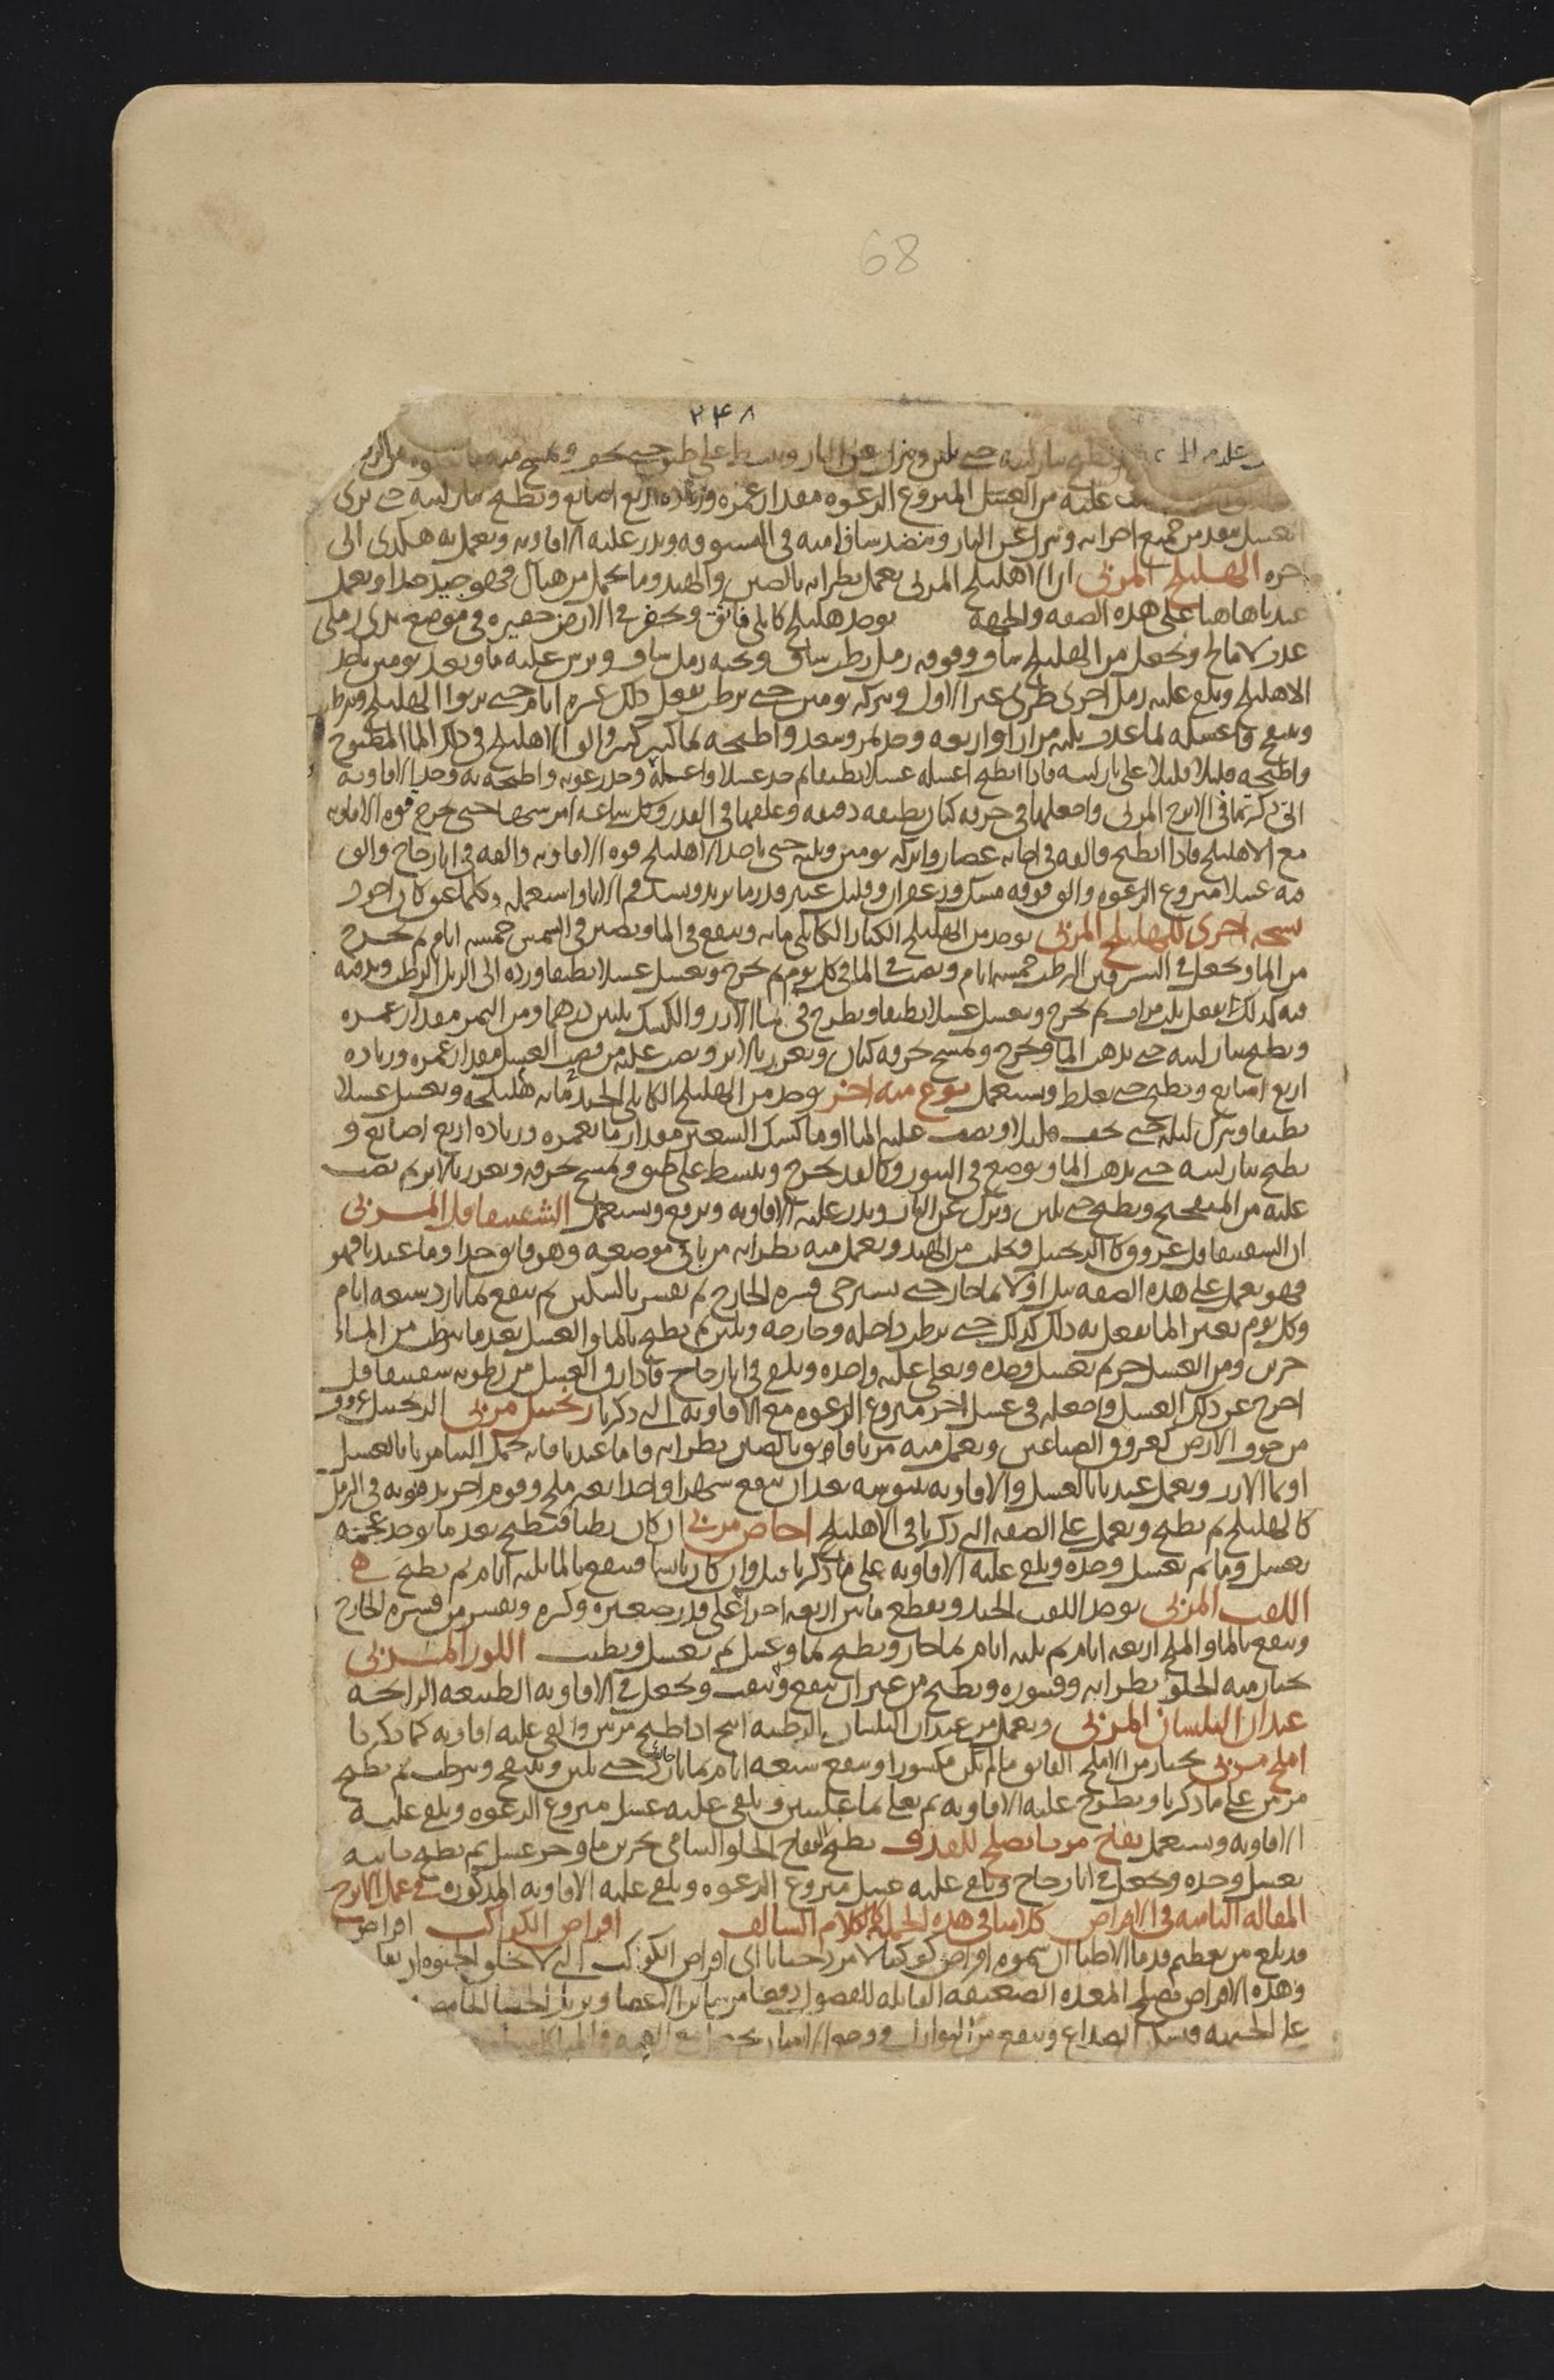 68
٢٤٨
ويطبخ بنار لينه حتى يلين وينزل عن النار ويبسط على طبق حتى يجف ويمسح
عليه من العسل المنزوع الرغوه مقدار غمره وزياده اربع اصابع ويطبخ بنار لينه حتى يرى
العسل ينفد من جميع اجزائه وينزل عن النار وينضد سافا منه في البستوقه ويذر عليه الافاويه ويعمل به هكذى الى
اخره الهليلج المربى ان الاهليلج المربى يعمل بطرائه بالصين والهند وما يحمل من هناك فهو جيد جدا ويعمل
عندنا هاهنا على هذه الصفه والجهه يوخذ هليلج كابلي فائق ويحفر في الارض حفيره في موضع ندي رملي
عذب لا مالح ويجعل من الهليلج ساف وفوقه رمل رطب ساف وتحته رمل ساف ويرش عليه ماو وبعد يومين ياخذ
الاهليلج ويلقى عليه رمل اخرى طرى غير الاول ويتركه يومين حتى يرطب يفعل ذلك عشره ايام حتى يربوا الهليلج ويرطب
وينتفخ واغسله بما عذب ثلث مرار او اربعه وخذ تمر وسعد واطبخه بما كثير والق الاهليلج في ذلك الما المطبوخ
واطبخه قليلا قليلا على نار لينه فاذا انطبخ اغسله غسلا نظيفا ثم خذ عسلا واغله وخذ رغوته واطبخه به وخذ الافاويه
التي ذكرتها في الاترج المربى واجعلها في خرقه كتان نظيفه دقيقه وعلقها في القدر وكل ساعه امرسها حتى يخرج قوه الافاويه
مع الاهليلج فاذا انطبخ فالقه في اجانه غضار واتركه يومين وثلثه حتى ياخذ الاهليلج قوه الافاويه والقه في انا زجاج والق
فيه عسلا منزوع الرغوه والق فوقه مسك وزعفران وقليل عنبر قدر ما تريد وسد فم الانا واستعمله وكلما عتق كان اجود
نسخه اخرى للهليلج المربى يوخذ من الهليلج الكبار الكابلي مايه وينقع في الما ويصير في الشمس خمسه ايام ثم يخرج
من الما ويجعل في السرقين الرطب خمسه ايام ويصب الما في كل يوم ثم يخرج ويغسل غسلا نظيفا ورده الى الزبل الرطب ويدفنه
فيه كذلك يفعل ثلث مرات ثم يخرج ويغسل غسلا نظيفا ويطرح في ما الارز والكشك ثلثين درهما ومن التمر مقدار غمره
ويطبخ بنار لينه حتى يذهب الما ويخرج ويمسح بخرقه كتان ويغرز بالابر ويصب عليه من قصب العسل مقدار غمره وزياده
اربع اصابع ويطبخ حتى يغلظ ويستعمل نوع منه اخر يوخذ من الهليلج الكابلي الجيد مايه هليلجه ويغسل غسلا
نظيفا ويترك ليله حتى يجف قليلا ويصب عليه الما او ما كشك الشعير مقدار ما يغمره وزياده اربع اصابع و
يطبخ بنار لينه حتى يذهب الما ويوضع في التنور وكالغد يخرج ويبسط على طبق ويمسح بخرقه ويغرز بالابر ثم يصب
عليه من الميفختج ويطبخ حتى يلين وينزل عن النار ويذر عليه الافاويه ويرفع ويستعمل الشقيقاقل المربى
ان الشقيقاقل عروق كالزنجبيل ويجلب من الهند ويعمل منه بطرائه مربا في موضعه وهو فايق جدا وما عندنا فهو
فهو يعمل على هذه الصفه يبل اولا بما حار حتى يسترخي قشره الخارج ثم يقشر بالسكين ثم ينقع بما بارد سبعه ايام
وكل يوم يغير الما يفعل به ذلك كذلك حتى يرطب داخله وخارجه ويلين ثم يطبخ بالما والعسل بعدما يترطب من الماء
جزين ومن العسل جز ثم بعسل وحده ويغلى غليه واحده ويلقى في انا زجاج فاذا رق العسل من رطوبه شقيقاقل
اخرج عن ذلك العسل واجعله في عسل اخر منزوع الرغوه مع الافاويه التي ذكرنا زنجبيل مربى الزنجبيل عروق
من جوف الارض كعروق الصباغين ويعمل منه مربا فايق بالصين بطرائه فاما عندنا فانه يحمل الينا مربا بالعسل
او بما الارز ويعمل عندنا بالعسل والافاويه بيبوسه بعد ان ينقع شهرا واحدا بغير ملح وقوم اخر يدفنونه في الرمل
كالهليلج ثم يطبخ ويعمل على الصفه التي ذكرنا في الاهليلج اجاص مربى ان كان رطبا فيطبخ بعد ما يوخذ عجمه
بعسل وما ثم بعسل وحده ويلقى عليه الافاويه على ما ذكرنا قبل وان كان يابسا فينقع بالما ثلثه ايام ثم يطبخ
اللفت المربى يوخذ اللفت الجيد ويقطع ما بين اربعه اجزا على قدر صغيره وكبره ويقشر من قشره الخارج
وينقع بالما والملح اربعه ايام ثم ثلثه ايام بما حار ويطبخ بما وعسل ثم بعسل ويطيب اللوز المربى
يختار منه الحلو بطرائه وقشوره ويطبخ من غير ان ينقع ويثقب ويجعل في الافاويه الطيبه الرايحه
عيدان البلسان المربى ويعمل من عيدان البلسان الرطبه اذا طبخ مرتين والقي عليه افاويه كما ذكرنا
املج مربى يختار من الاملج الفايق ما لم يكن مكسورا وينقع سبعه ايام بما بارد حتى يلين وينتفخ ويترطب ثم يطبخ
مرتين على ما ذكرنا ويطرح عليه الافاويه ثم يغلى بما غليتين ويلقى عليه عسل منزوع الرغوه ويلقى عليه
الافاويه ويستعمل تفاح مربا يصلح للقذف يطبخ التفاح الحلو الشامي بجزين ما وجز عسل ثم يطبخ ثانيه
بعسل وحده ويجعل في انا زجاج ويلقى عليه عسل منزوع الرغوه ويلقى عليه الافاويه المذكوره في عمل الاترج
المقاله الثامنه في الاقراص كلامنا في هذه الجمله كالكلام السالف اقراص الكواكب اقراص
قد بلغ من تعظيم قدما الاطبا ان سموه اقراص كوكبا اى اقراص الكواكب التي لا
وهذه الاقراص تصلح المعده الضعيفه القابله للفضول دفعا من ساير الاعضا ويزيل الجشا الحامض
على الجبهه فيسكن الصداع وينفع من النوازل ووجع الاسنان